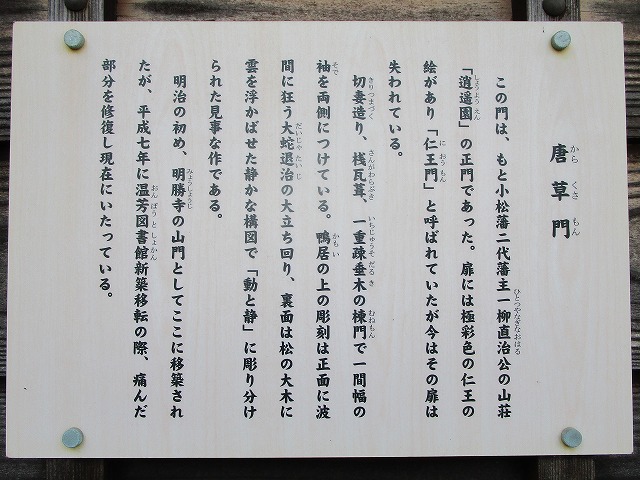 唐草門
この門は、もと小松藩二代藩主一柳直治公の山荘
「逍遥園」の正門であった。扉には極彩色の仁王の
絵があり「仁王門」と呼ばれていたが今はその扉は
失われている。
切妻造り、桟瓦葺、一重疎垂木の棟門で一間幅の
袖を両側につけている。鴨居の上の彫刻は正面に波
間に狂う大蛇退治の大立ち回り、裏面は松の大木に
雲を浮かばせた静かな構図で「動と静」に彫り分け
られた見事な作である。
明治の初め、明勝寺の山門としてここに移築され
たが、平成七年に温芳図書館新築移転の際、痛んだ
部分を修復し現在にいたっている。